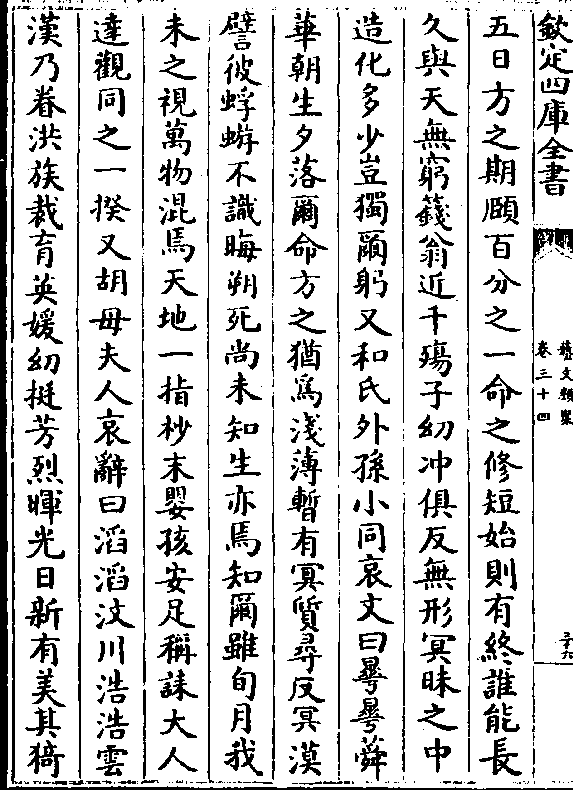 欽定四庫全書
藝文類聚
卷三十四
五日方之期頤百分之一命之修短始則有終誰能長
久與天無窮籛翁近千殤子幼冲俱反無形冥昧之中
造化多少豈獨爾躬又和氏外孫小同哀文曰曅曅蕣
華朝生夕落爾命方之猶為淺薄暫有冥質尋反冥漠
譬彼蜉蝣不識晦朔死尚未知生亦焉知爾雖旬月我
未之視萬物混焉天地一指杪末嬰孩安足稱誄大人
達觀同之一揆又胡母夫人哀辭曰滔滔汶川浩浩雲
漢乃眷洪族裁育英媛幼挺芳烈暉光日新有美其猗